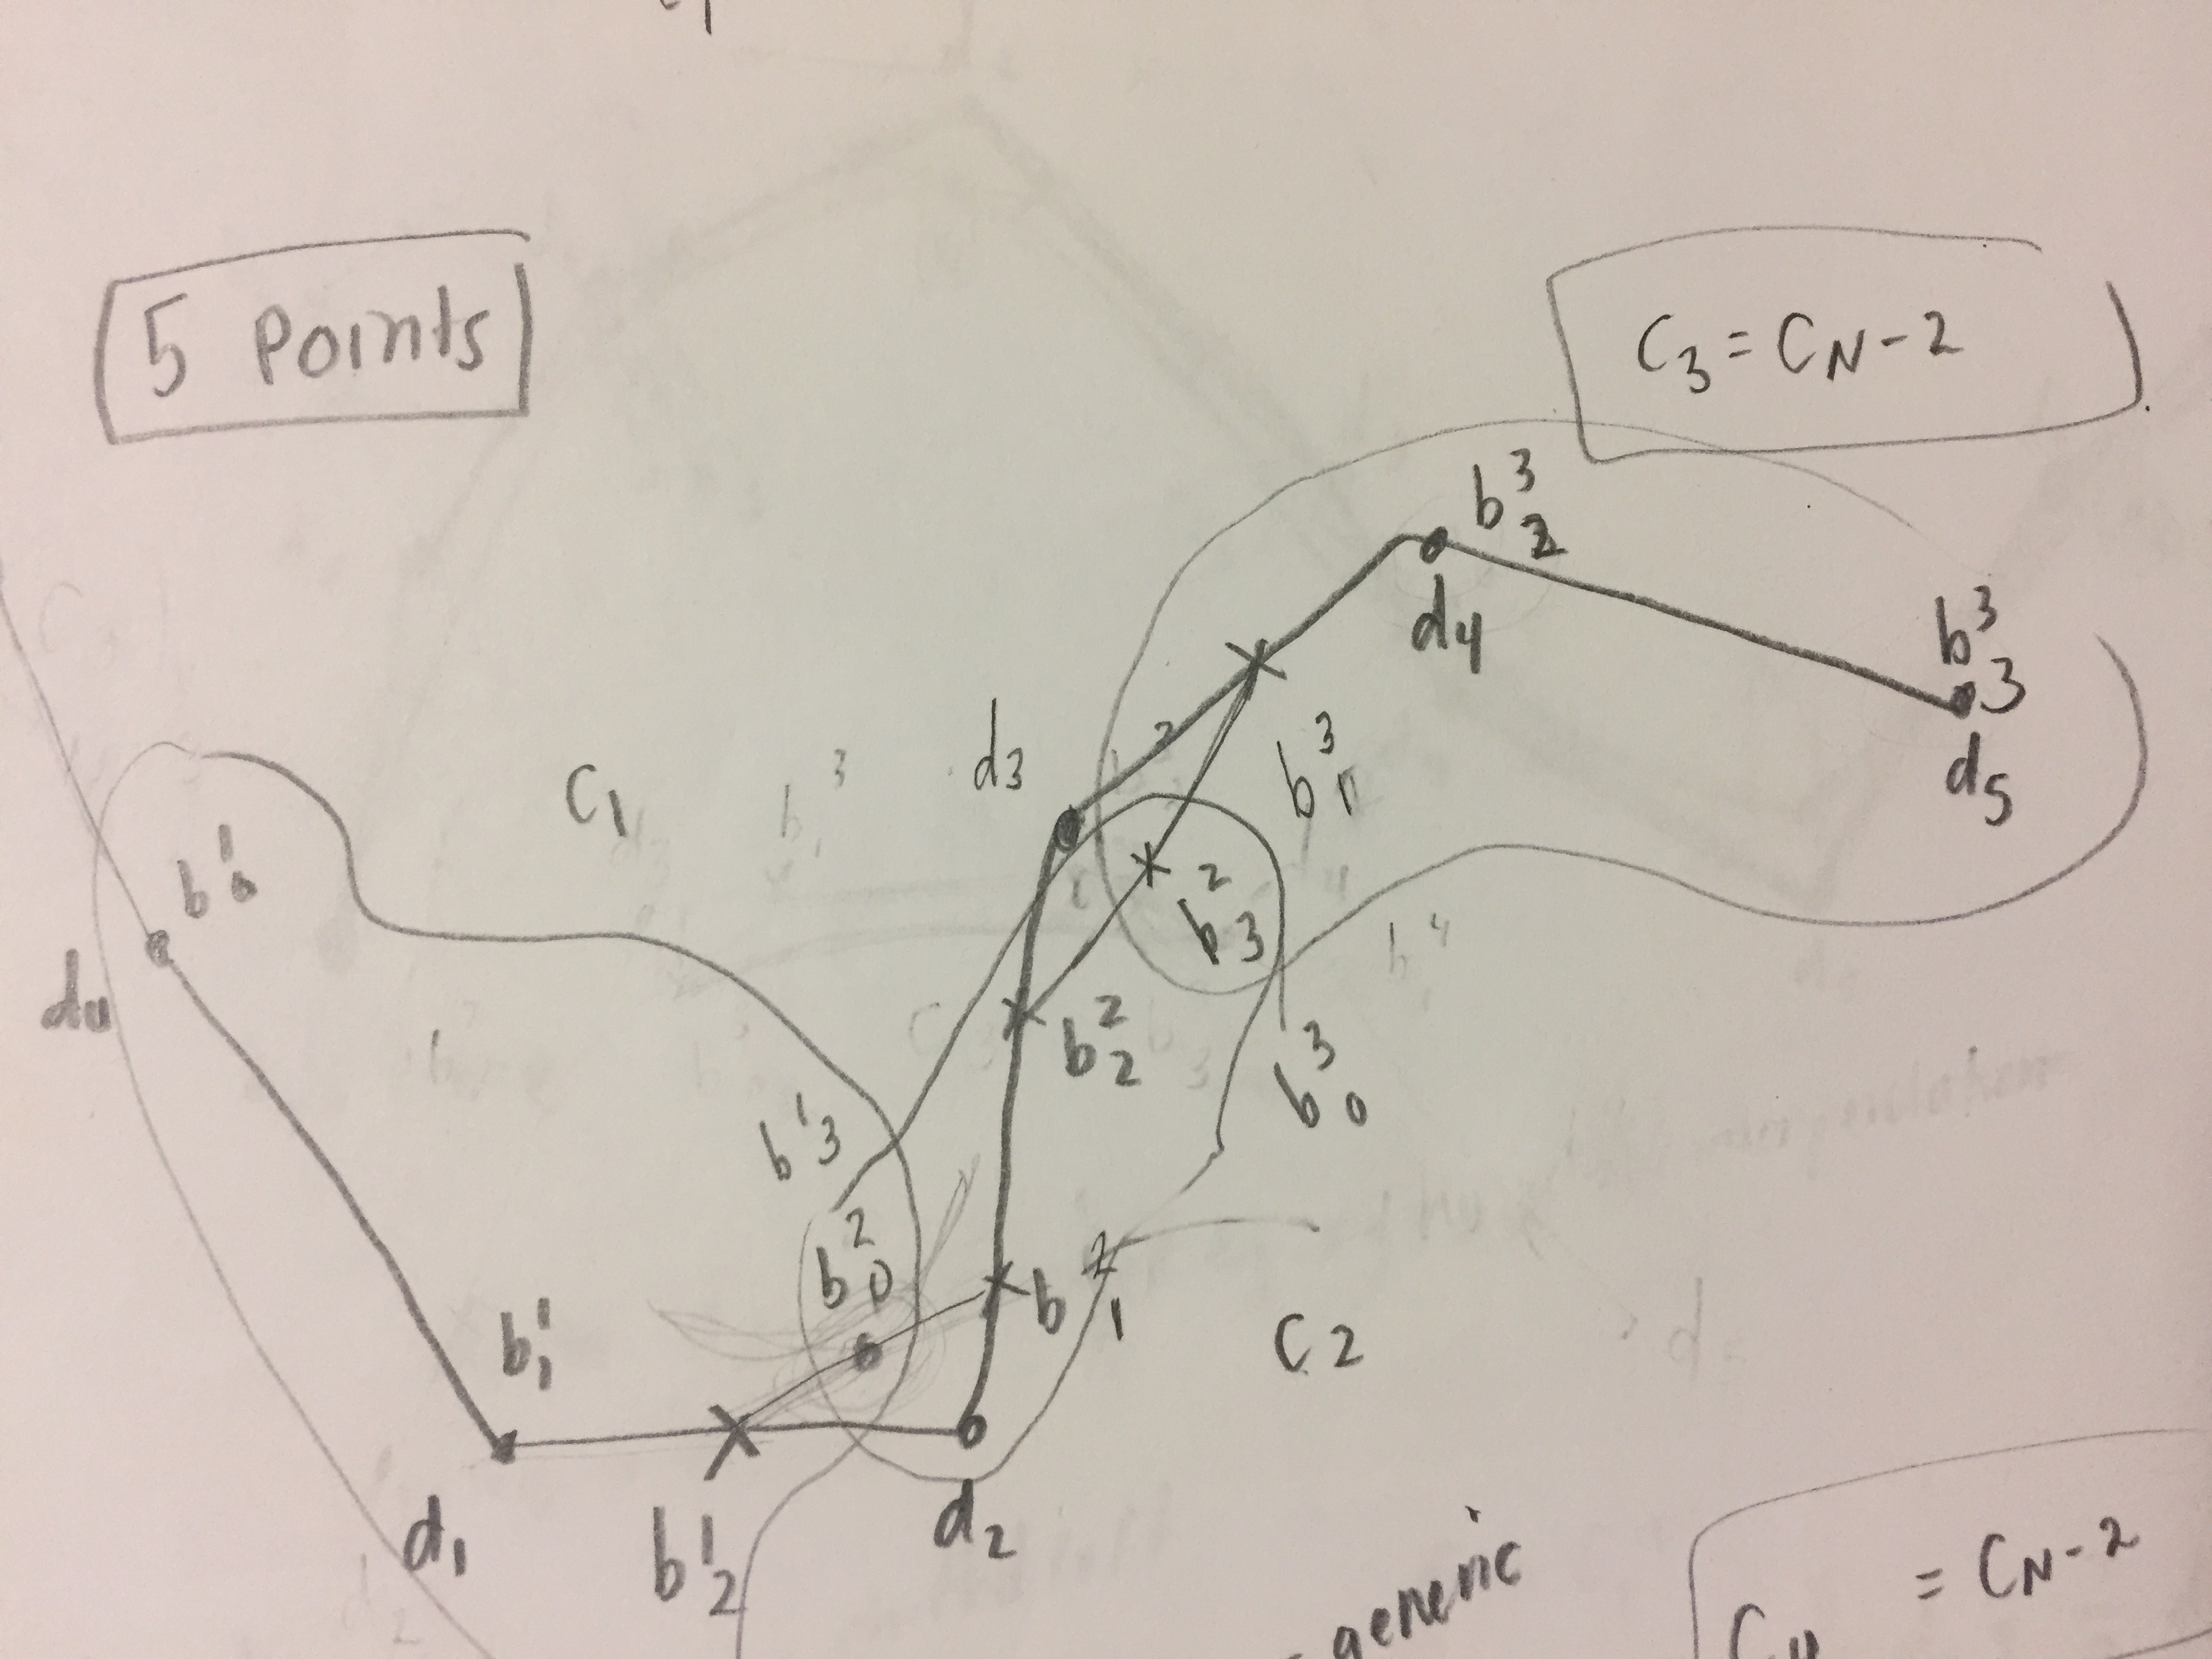 5 Points
C₃ = C_N-2
b³₂
d₄
b³₃
d₅
d₃
b³₁
C₁
b¹₀
d₀
b²₃
b²₂
b³₀
b¹₃
b²₀
b²₁
C₂
b¹₁
d₁
b¹₂
d₂
generic
C₄ = C_N-2